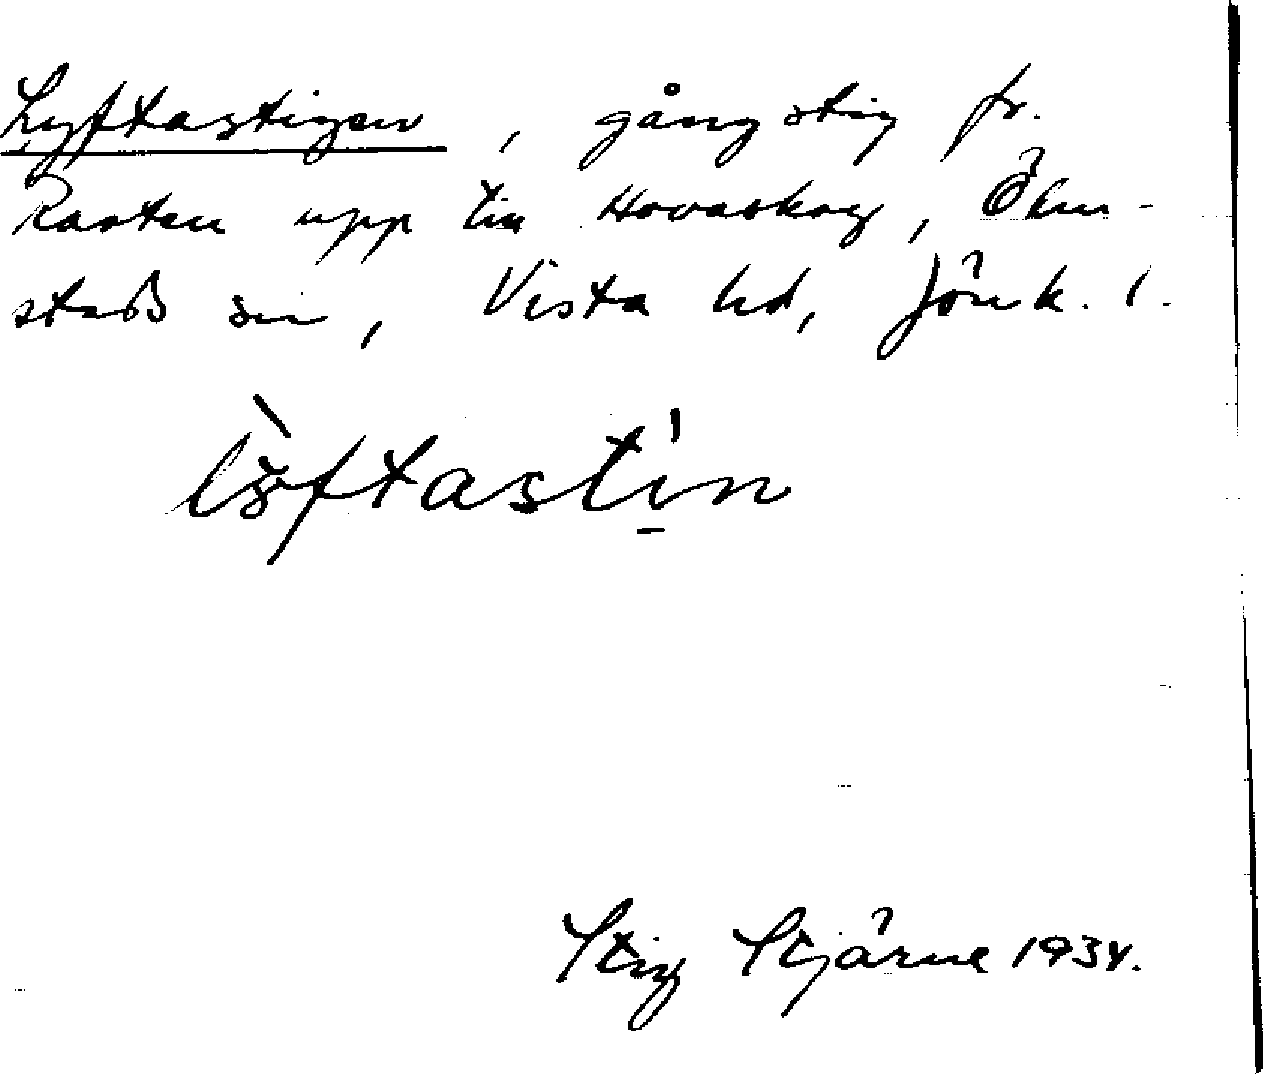 Lyftastigen, gångstig fr.
Rasten upp till Hovaskog, Ölm-
stads sn, Vista hd, Jönk. l.
Stig Stjärne 1934.